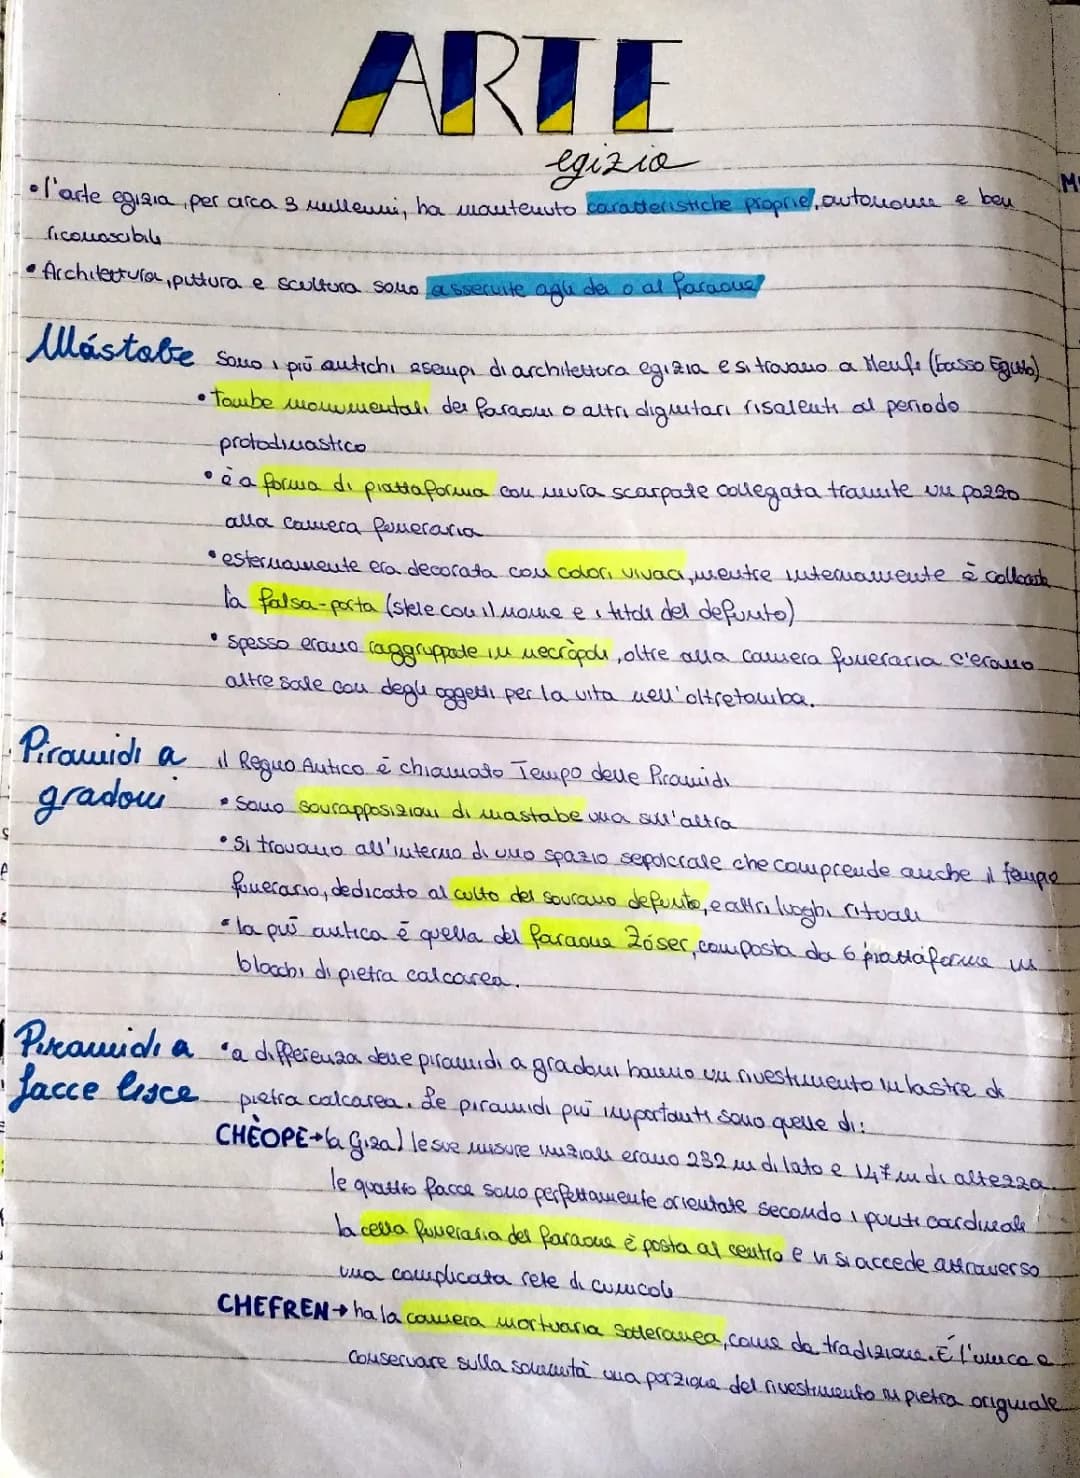 ARTE
egizia
• l'arte egizia, per circa 3 millenni, ha mantenuto caratteristiche proprie, autonome e ben
riconoscibili
• Architettura, pittura e scultura sono asservite agli dei o al faraone
Mástabe sono i più antichi esempi di architettura egizia e si trovano a Menfi (basso Egitto)
• tombe monumentali dei faraoni o altri dignitari risalenti al periodo
protodinastico
• è a forma di piattaforma con mura scarpate collegata tramite un pozzo
alla camera funeraria
• esternamente era decorata con colori vivaci, mentre internamente è collocata
la falsa-porta (stele con il nome e i titoli del defunto)
• spesso erano raggruppate in necròpoli, oltre alla camera funeraria c'erano
altre sale con degli oggetti per la vita nell'oltretomba.
Piramidi a il Regno Antico è chiamato Tempo delle Piramidi
gradoni • Sono sovrapposizioni di mastabe una sull'altra
• Si trovano all'interno di uno spazio sepolcrale che comprende anche il tempio
funerario, dedicato al culto del sovrano defunto, e altri luoghi rituali
• la più antica è quella del faraone Zóser, composta da 6 piattaforme in
blocchi di pietra calcarea.
Piramidi a • a differenza delle piramidi a gradoni hanno un rivestimento in lastre di
facce lisce pietra calcarea. Le piramidi più importanti sono quelle di:
CHÈOPE→(a Giza) le sue misure iniziali erano 232 m di lato e 147 m di altezza.
le quattro facce sono perfettamente orientate secondo i punti cardinali
la cella funeraria del faraone è posta al centro e vi si accede attraverso
una complicata rete di cunicoli
CHEFREN→ ha la camera mortuaria sotteranea, come da tradizione. È l'unica a
conservare sulla sommità una porzione del rivestimento in pietra originale